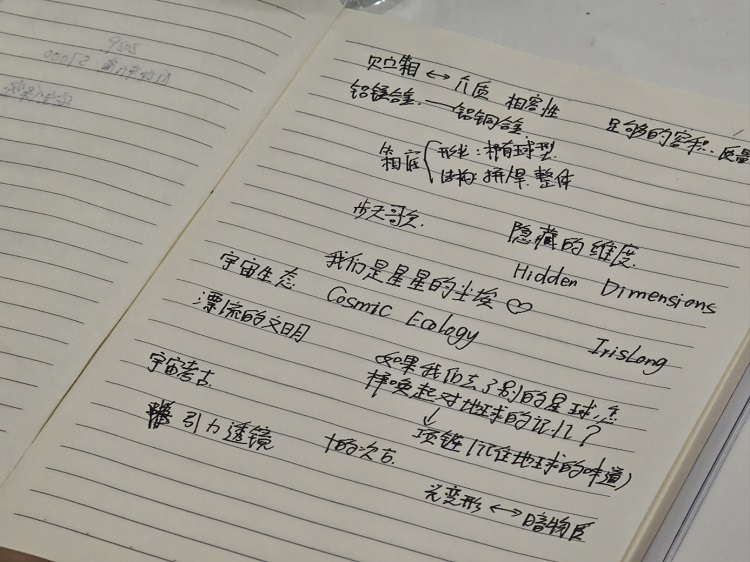 贮箱 ↔ 介质 相容性
铝镁合金 —— 铝铜合金
足够的容积、质量
箱底 { 形状：椭球型
结构：拼焊 整体
步天歌
隐藏的维度
Hidden Dimensions
我们是星星的尘埃 ♡
宇宙生态 Cosmic Ecology
漂流的文明
IrisLong
如果我们去了别的星球,怎
样唤起对地球的记忆？
↓
项链(记住地球的味道)
宇宙考古
引力透镜
光变形 ↔ 暗物质